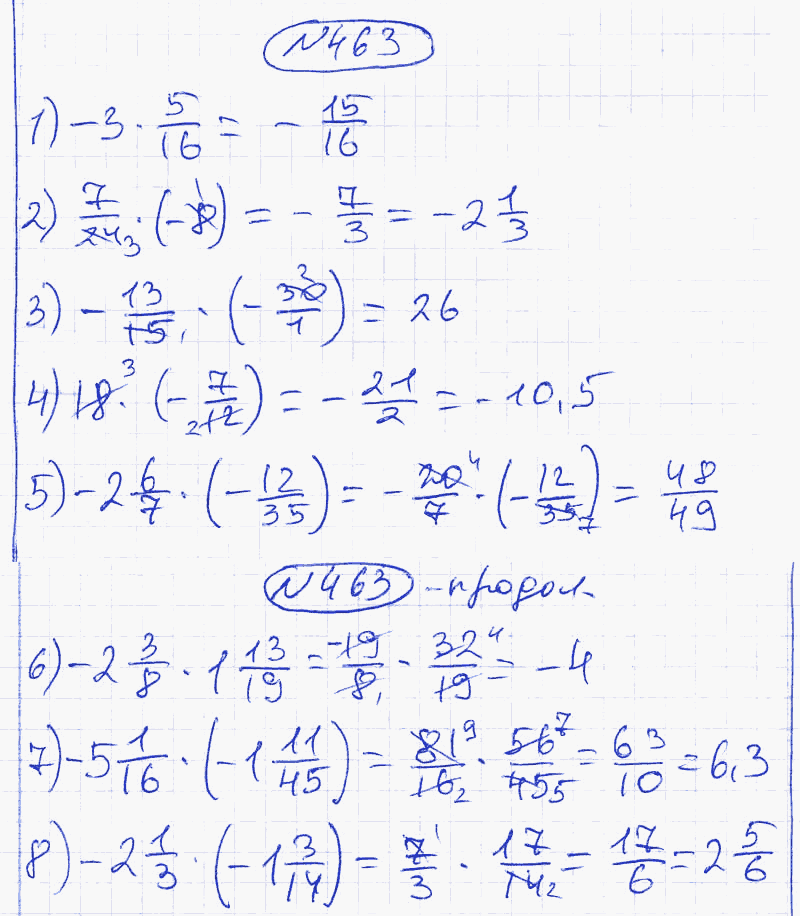 №463
1) -3 · 5/16 = - 15/16
2) 7/24 3 · (-8 1) = - 7/3 = -2 1/3
3) - 13/15 1 · (- 30 2/1) = 26
4) 18 3 · (- 7/12 2) = - 21/2 = -10,5
5) -2 6/7 · (- 12/35) = - 20 4/7 · (- 12/35 7) = 48/49
№463 - продол.
6) -2 3/8 · 1 13/19 = -19/8 1 · 32 4/19 = -4
7) -5 1/16 · (-1 11/45) = 81 9/16 2 · 56 7/45 5 = 63/10 = 6,3
8) -2 1/3 · (-1 3/14) = 7 1/3 · 17/14 2 = 17/6 = 2 5/6